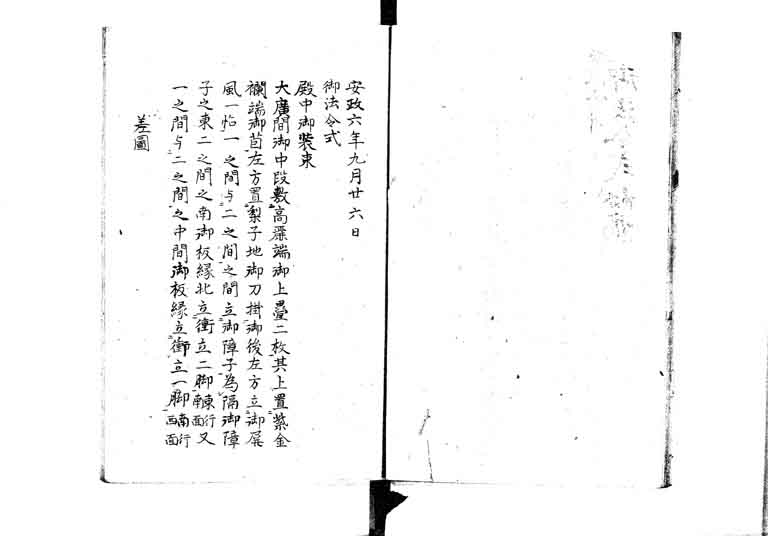 安政六年九月廿六日
御法令式
殿中御装束
大廣間御中段敷高麗端御上疊二枚其上置紫金
襴端御茵左方置梨子地御刀掛御後左方立御屏
風一帖一之間与二之間之間立御障子為隔御障
子之東二之間之南御板縁北立衝立二脚東行南面又
一之間与二之間之中間御板縁立衝立一脚南行西面
差圖